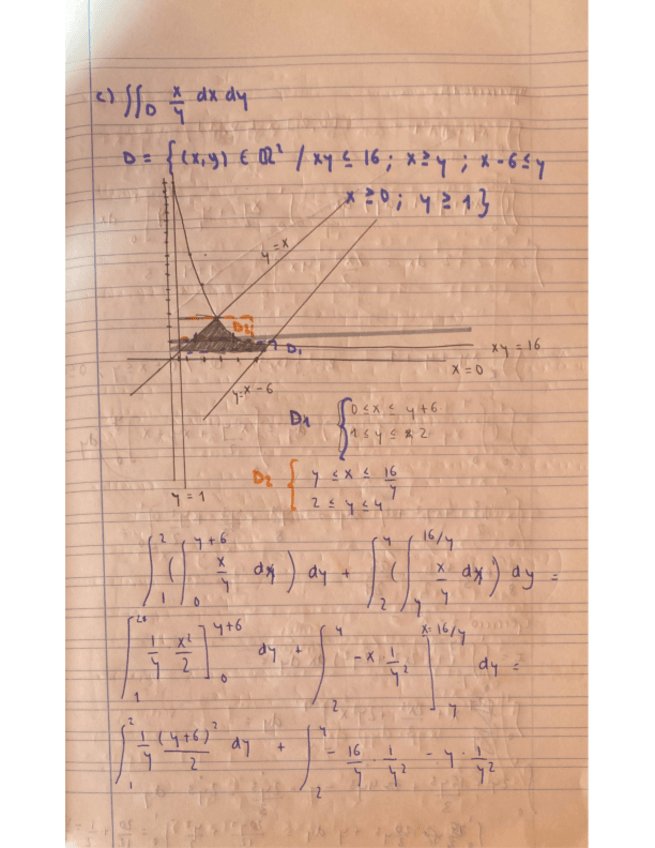 c) ∬_D x/y dx dy
D = { (x,y) ∈ ℝ² / xy ≤ 16 ; x ≥ y ; x - 6 ≤ y
x ≥ 0 ; y ≥ 1 }
y = x
D2
D1
xy = 16
x = 0
y = x - 6
D1 { 0 ≤ x ≤ y + 6
1 ≤ y ≤ 2
D2 { y ≤ x ≤ 16/y
2 ≤ y ≤ 4
y = 1
∫_1^2 ( ∫_0^{y+6} x/y dx ) dy + ∫_2^4 ( ∫_y^{16/y} x/y dx ) dy =
∫_1^2 1/y x²/2 ]_0^{y+6} dy + ∫_2^4 - x · 1/y² ]_y^{x=16/y} dy =
∫_1^2 1/y (y+6)²/2 dy + ∫_2^4 - 16/y · 1/y² - y · 1/y²